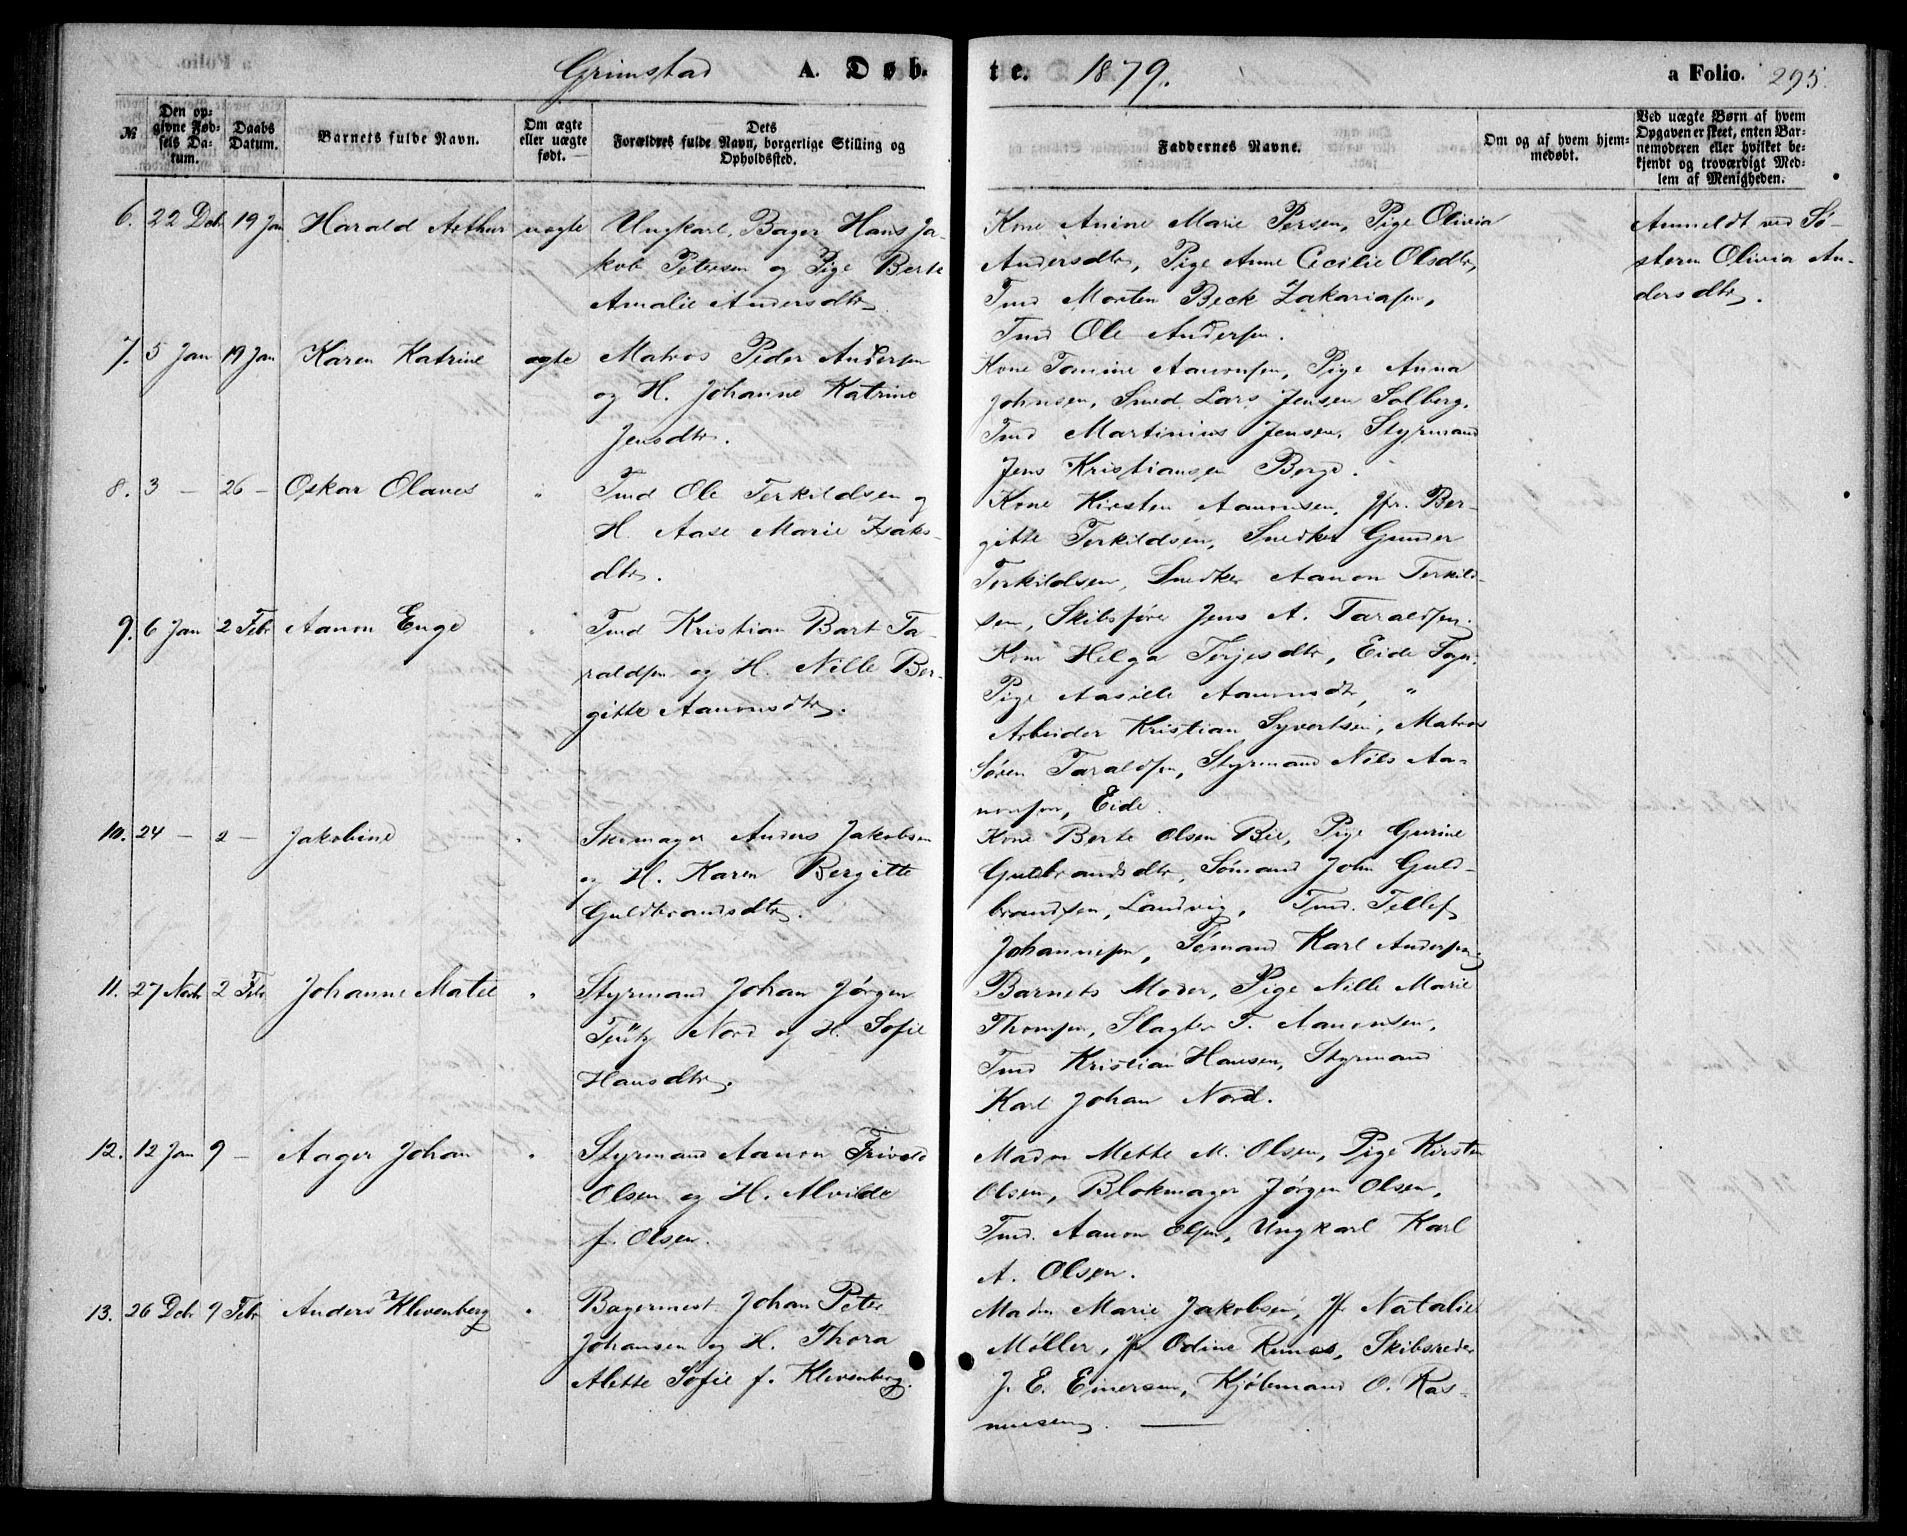 Grimstad A. Døbte. 1879. a Folio. 295.
№
Den opgivne Fødsels Datum.
Daabs Datum.
Barnets fulde Navn.
Om ægte eller uægte født.
Dets Forældres fulde Navn, borgerlige Stilling og Opholdssted.
Faddernes Navne.
Om og af hvem hjemmedøbt.
Ved uægte Børn af hvem Opgaven er skeet, enten Barnemoderen eller hvilket bekjendt og troværdigt Medlem af Menigheden.
6. 22 Deb 19 Jan Harald Arthur uægte
Ungkarl, Bager Hans Ja-
kob Petersen og Pige Berte
Amalie Andersdtr.
Kone Anine Marie Persen, Pige Olivia
Andersdtr, Pige Anne Cecilie Olsdtr,
Tmd Morten Beck Zakariasen,
Tmd Ole Andersen.
Anmeldt ved Sø-
steren Olivia An-
dersdtr.
7. 5 Jan 19 Jan Karen Katrine ægte
Matros Peder Andersen
og H. Johanne Katrine
Jensdtr.
Kone Tomine Aanonsen, Pige Anna
Johnsen, Smed Lars Jensen Solberg,
Tmd Martinius Jensen, Styrmand
Jens Kristiansen Berge.
8. 3 — 26 — Oskar Olaves "
Tmd Ole Terkildsen og
H. Aase Marie Isaks-
dtr.
Kone Kirsten Aanonsen, Jfr. Ber-
gitte Terkildsen, Snedker Gunder
Terkildsen, Snedker Aanon Terkild-
sen, Skibsfører Jens A. Taraldsen.
9. 6 Jan 2 Febr Aanon Enge "
Tmd Kristian Bart Ta-
raldsen og H. Nille Ber-
gitte Aanonsdtr.
Kone Helga Terjesdtr, Eide Sogn.
Pige Aasille Aanonsdtr, "
Arbeider Kristian Syvertsen, Matros
Søren Taraldsen, Styrmand Nils Aa-
nonsen, Eide.
10. 24 — 2 — Jakobine "
Skomager Anders Jakobsen
og H. Karen Bergitte
Guldbrandsdtr.
Kone Berte Olsen Bie, Pige Gurine
Guldbrandsdtr, Sømand John Guld-
brandsen, Landvig, Tmd. Tellef
Johannesen, Sømand Karl Andersen
11. 27 Novb 2 Febr Johanne Matie "
Styrmand Johan Jørgen
Nord og H. Sofie
Hansdtr.
Barnets Moder, Pige Nille Marie
Thomsen, Slagter T. Aanonsen,
Tmd Kristian Hansen, Styrmand
Karl Johan Nord.
12. 12 Jan 9 — Aager Johan "
Styrmand Aanon Trivold
Olsen og H. Alvilde
f. Olsen.
Madm Mette M. Olsen, Pige Kirsten
Olsen, Blokmager Jørgen Olsen,
Tmd. Aanon Olsen, Ungkarl Karl
A. Olsen.
13. 26 Deb 9 Febr Anders Klevenberg "
Bagermest. Johan Peter
Johansen og H. Thora
Alette Sofie f. Klevenberg.
Madm Marie Jakobsen, Jfr Natalie
Møller, Jfr Odine Rines, Skibsreder
J. E. Einersen, Kjøbmand O. Ras-
mussen.